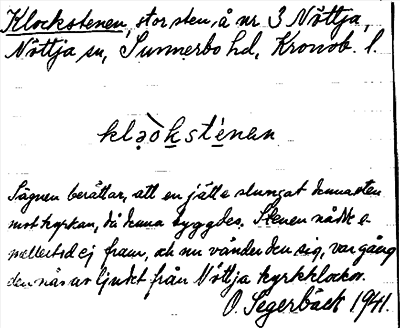 Klockstenen, stor sten, å nr 3 Nöttja,
Nöttja sn, Sunnerbo hd, Kronob. l.
klə̣òkstе́nen
Sägnen berättar, att en jätte slungat denna sten
mot kyrkan, då denna byggdes. Stenen nådde e-
mellertid ej fram, och nu vänder den sig, var gång
den nås av ljudet från Nöttja kyrkklockor.
O. Segerbäck 1941.